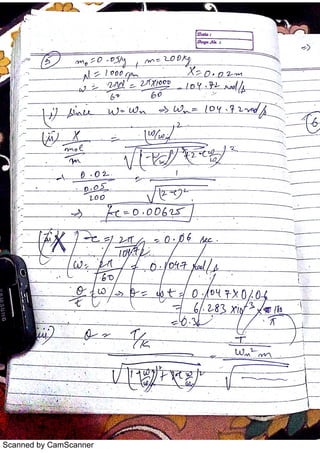 Date :
Page No. :
(5) m₀ = 0.05kg, m = 200kg
N = 1000 rpm X = 0.02m
ω = 2πN/60 = 2π×1000/60 = 104.72 rad/s
i) Since ω = ωn ⇒ ωn = 104.72 rad/s
(ii) X/(m₀e/m) = (ω/ωn)² / √((1-(ω/ωn)²)² + (2ξω/ωn)²)
⇒ 0.02/(0.05/200) = 1/√(2ξ)²
⇒ ξ = 0.00625
(iii) X t = 2π/104.72 = 0.06 sec.
ω = 2π/60 = 0.1047 rad/s
θ/t = ω ⇒ θ = ωt = 0.1047×0.06
= 6.283×10⁻³ × 180/π
= 0.36
iii) θ = T/K / √ = T/ωn² m / √
(6
Scanned by CamScanner